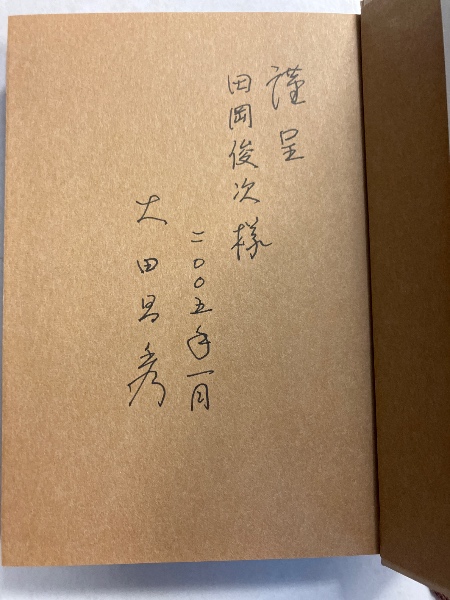 謹呈
田岡俊次様
二〇〇五年一月
大田昌秀